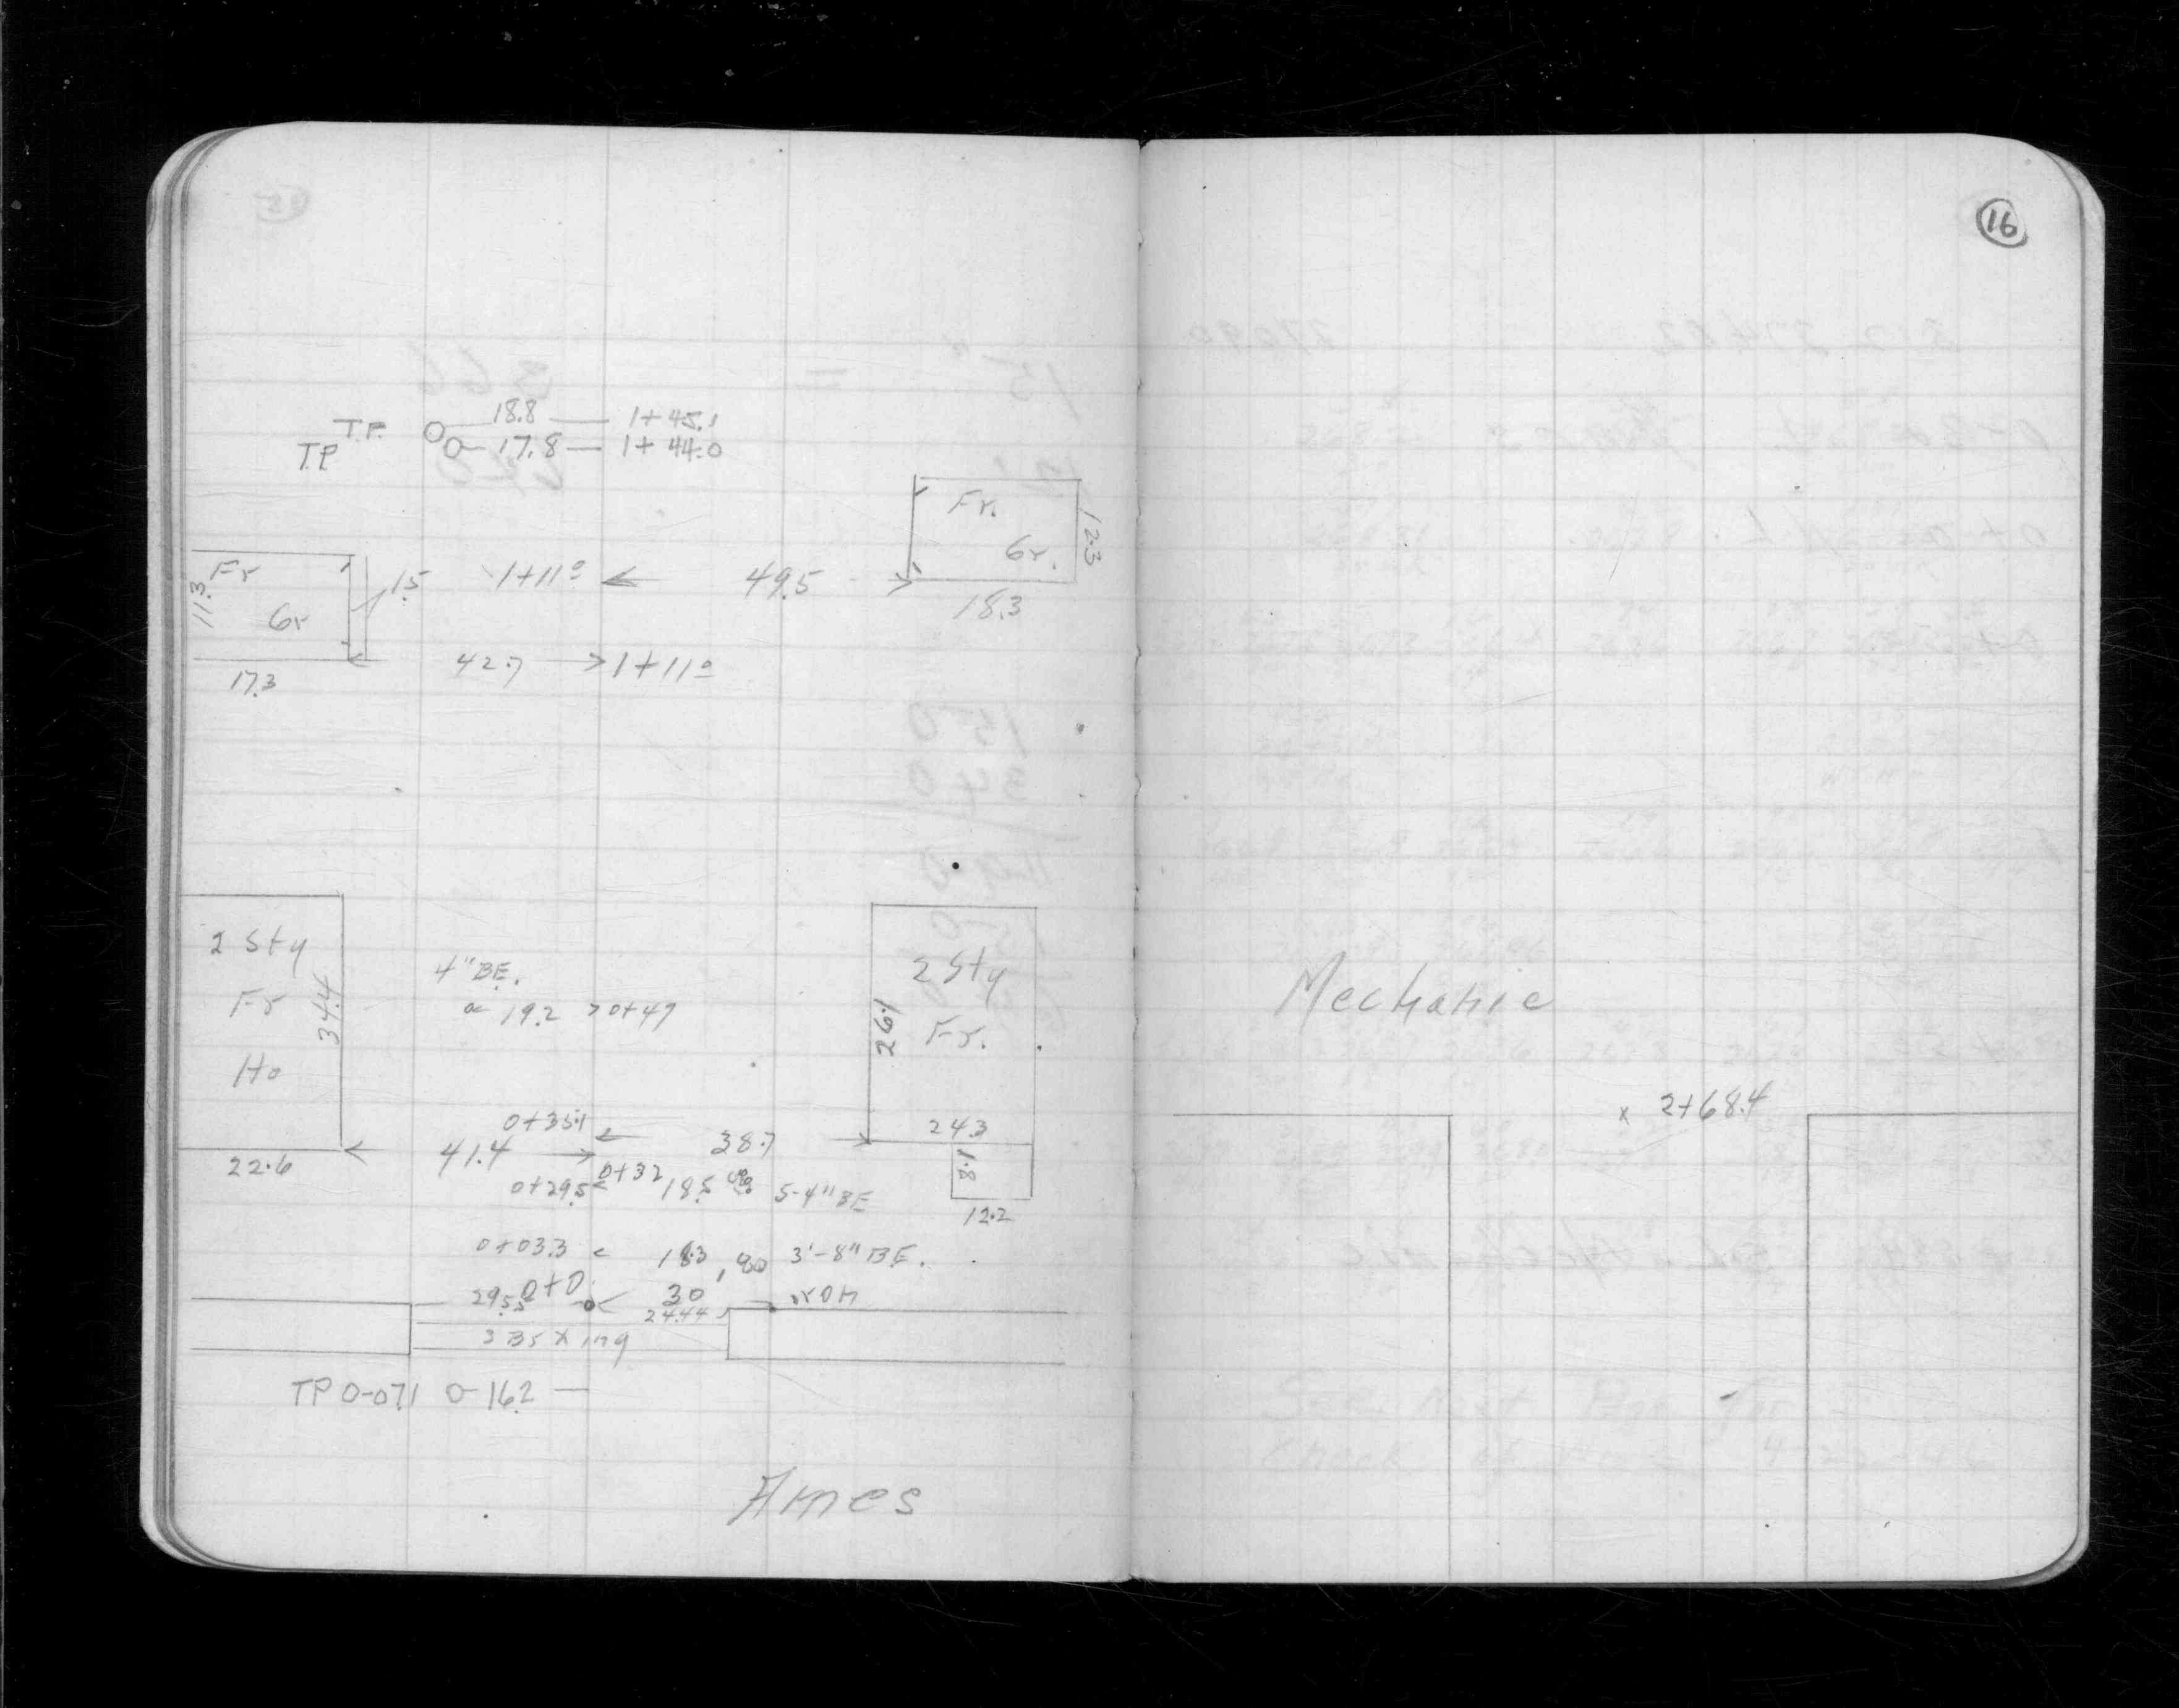 T.P. 18.8 1+45.1
T.P 17.8 1+44.0
Fr.
6r.
12.3
18.3
1+11⁰ 49.5
Fr
6r
11.3
1.5
17.3
42.7 1+11⁰
2 Sty
Fr
Ho
34.4
22.6
4" BE.
19.2 0+47
2 Sty
Fr.
26.1
24.3
8.1
12.2
0+35.1
41.4 38.7
0+32
0+29.5 18.5 5-4" BE
0+03.3 18.3 3'-8" BE.
0+0 30'
29.55 24.44
3 BS X ing
TP 0-07.1 0-16.2
Ames
16
Mechanic
x 2+68.4